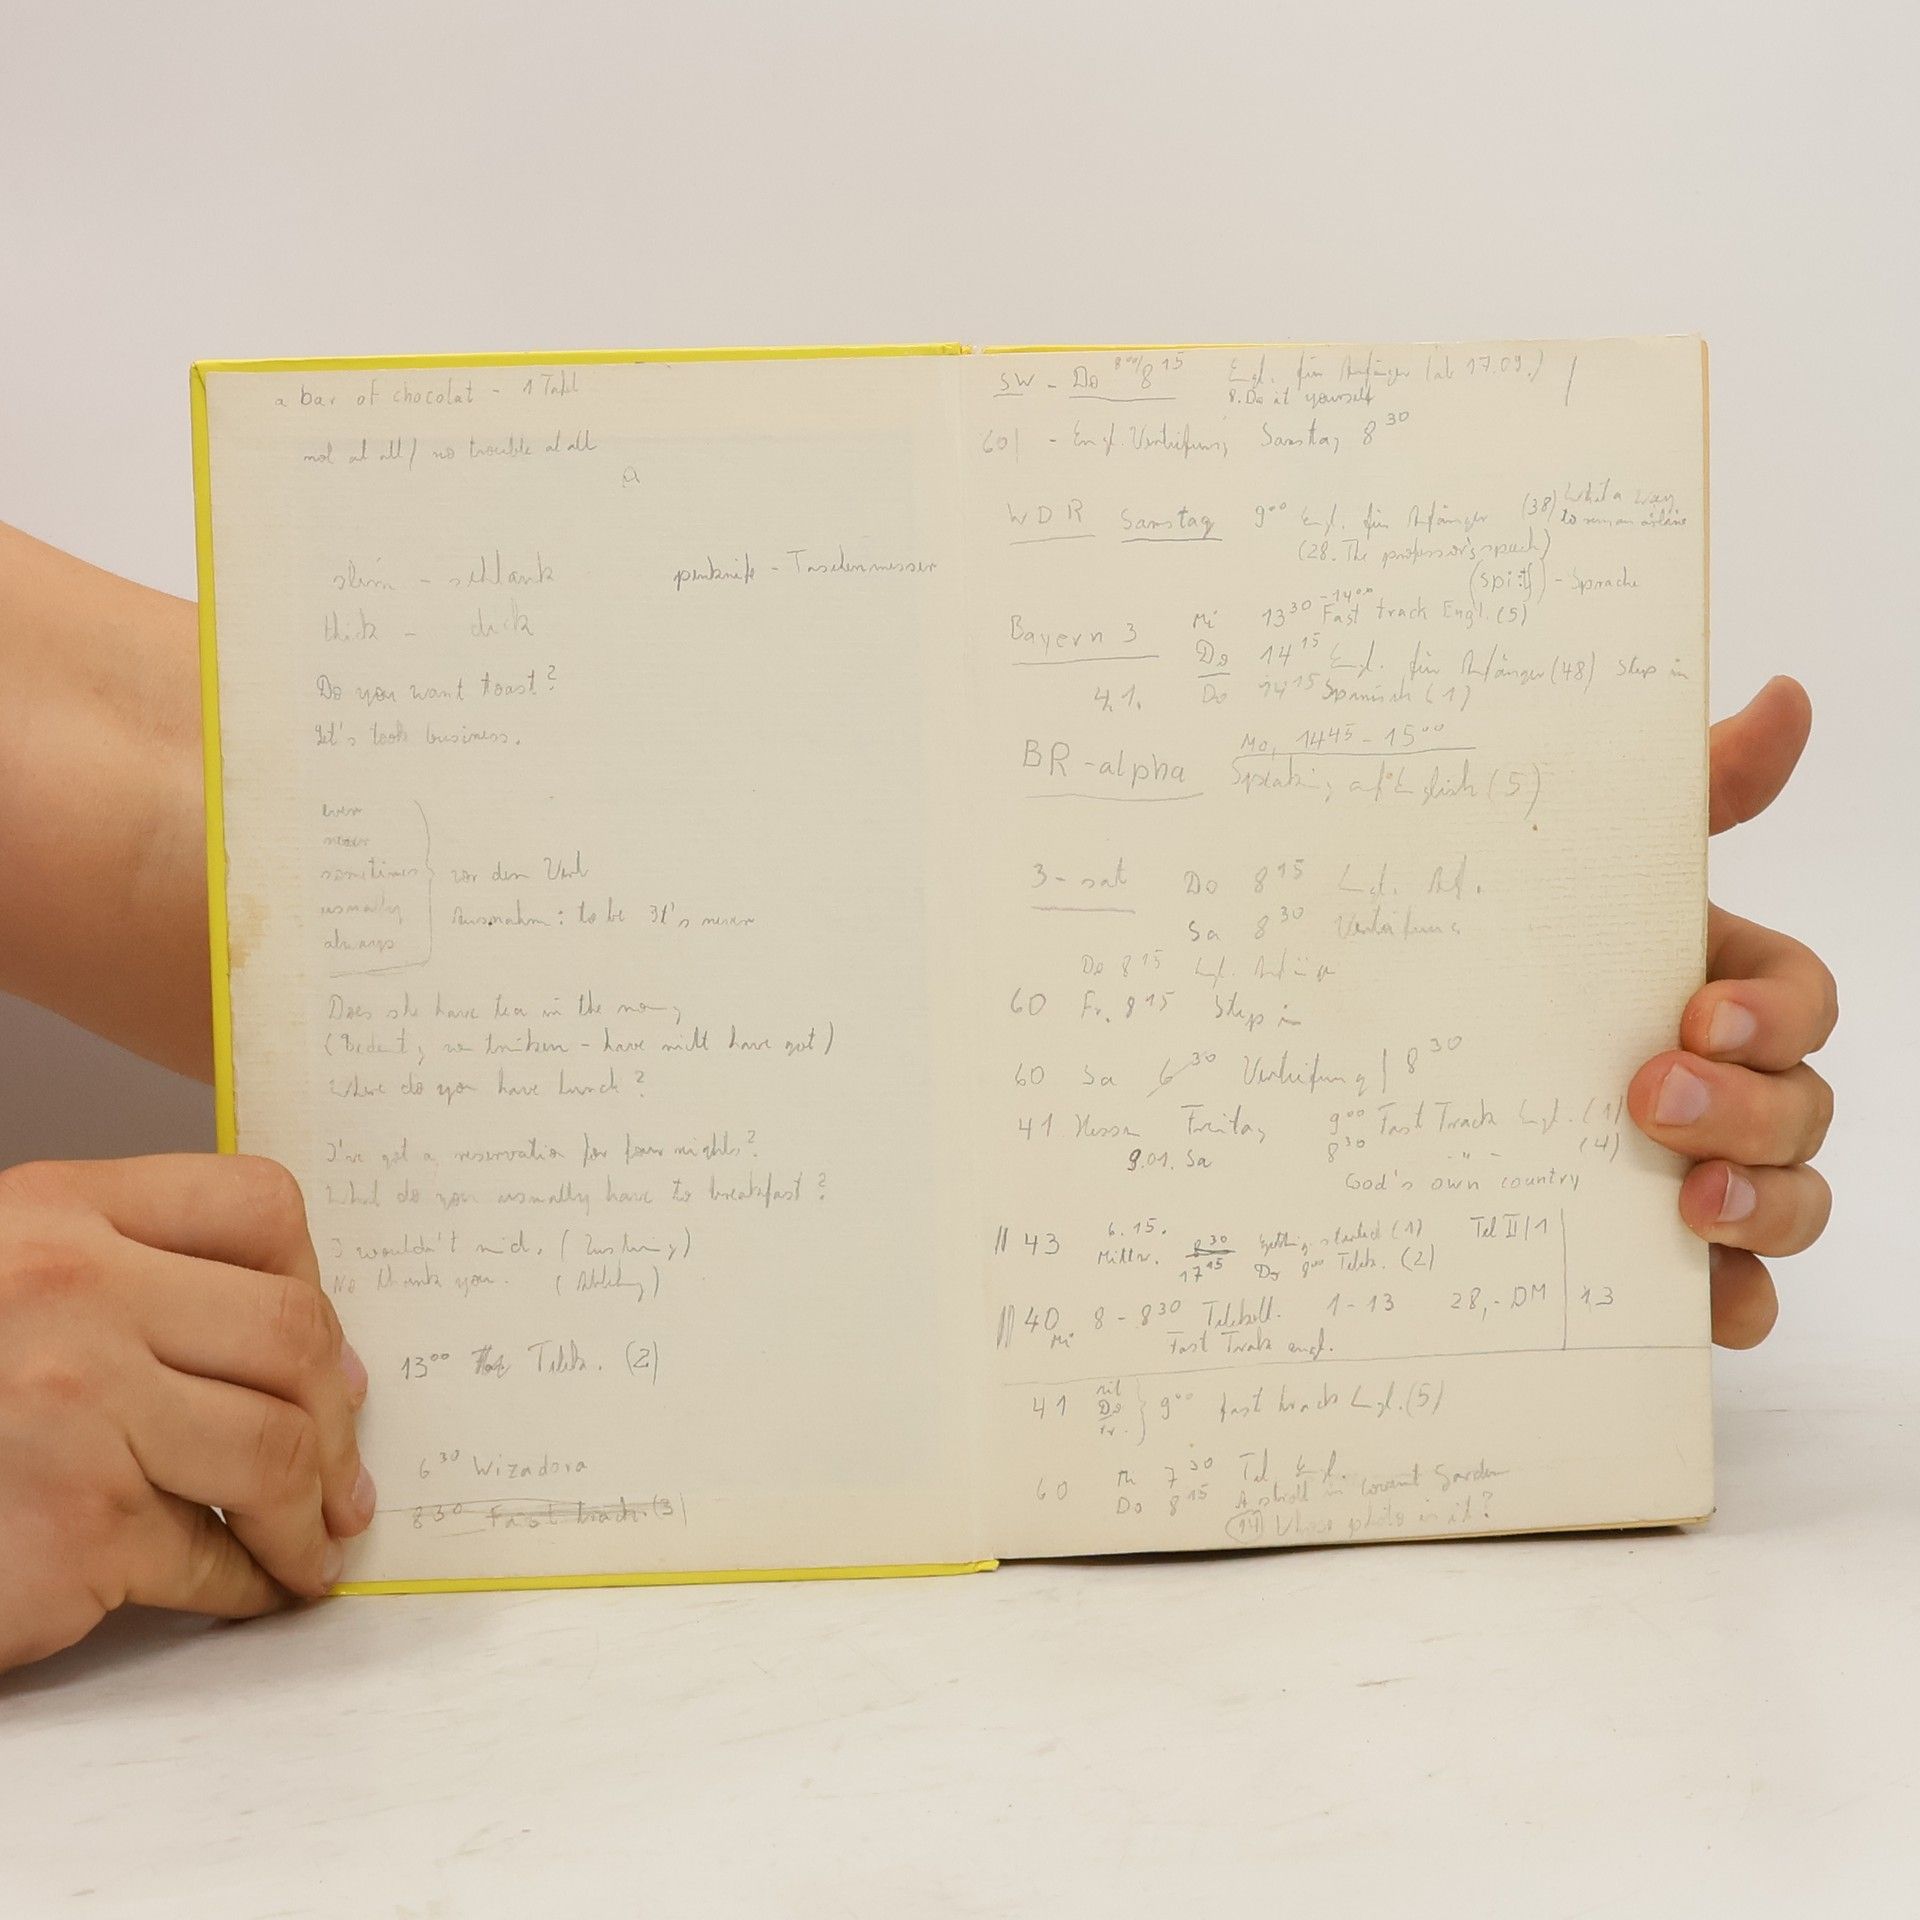 a bar of chocolat - 1 Tafel
not at all / no trouble at all
slim - schlank penknife - Taschenmesser
thick - dick
Do you want toast?
Let's took business.
ever
never
sometimes
usually
always
vor dem Verb
Ausnahm: to be It's never
Does she have tea in the
- have nicht have got)
Where do you have lunch?
I've got a reservation for four nights?
What do you usually have to breakfast?
I wouldn't
No thank you.
13⁰⁰ Telek. (2)
6³⁰ Wizadora
8³⁰ Fast track (3)
SW - Do 8⁰⁰/8¹⁵ Engl. für Anfänger (ab 17.09.)
8. Do it yourself
60 - Engl. Vertiefung Samstag 8³⁰
WDR Samstag 9⁰⁰ Engl. für Anfänger (38) What a way to run an airline
(28. The professor's speech)
(spi:tʃ) - Sprache
Bayern 3 Mi 13³⁰-14⁰⁰ Fast track Engl. (5)
Do 14¹⁵ Engl. für Anfänger (48) Step in
4.1. Do 14¹⁵ Spanisch (1)
BR-alpha Mo, 14⁴⁵ - 15⁰⁰
Speaking of English (5)
3-sat Do 8¹⁵ Engl. Anf.
Sa 8³⁰ Vertiefung
Do 8¹⁵ Engl.
60 Fr. 8¹⁵ Step in
60 Sa 6³⁰ Vertiefung | 8³⁰
41 Hessen Freitag 9⁰⁰ Fast Track Engl. (1)
9.01. Sa 8³⁰ - " - (4)
God's own country
43 6.15. Getting started (1) Tel II/1
Mittw. 8³⁰ 17¹⁵ Do 8⁰⁰ Telek. (2)
40 Mi 8 - 8³⁰ Telekoll. 1-13 28,- DM 13
Fast Track engl.
41 Mit Do Fr. } 9⁰⁰ fast track Engl. (5)
60 7³⁰ Tel. Engl.
Do 8¹⁵ A stroll in Covent Garden
(14) Whose photo is it?